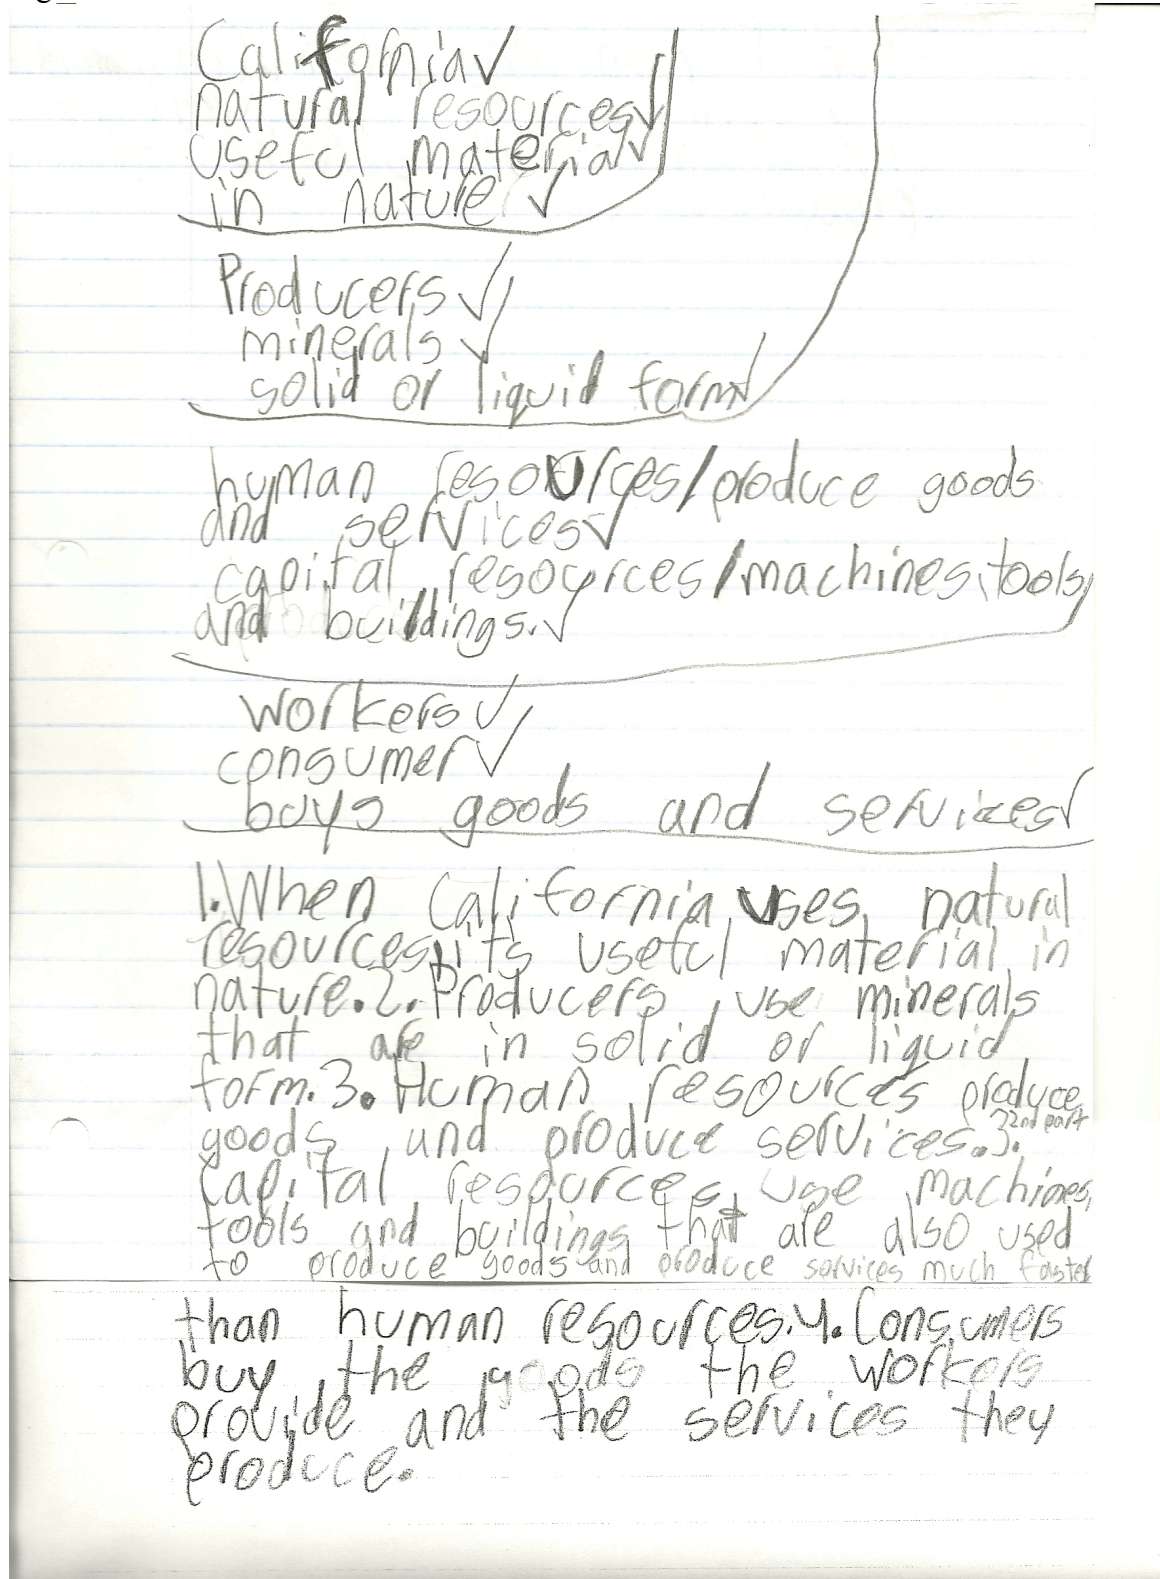 California✓
natural resources✓
useful material✓
in nature ✓
Producers ✓
minerals ✓
solid or liquid form✓
human resources/produce goods
and services✓
capital resources/machines, tools,
and buildings.✓
workers ✓
consumer ✓
buys goods and services✓
1. When California uses natural
resources, it's useful material in
nature. 2. Producers use minerals
that are in solid or liquid
form. 3. Human resources produce
goods and produce services. 3. 2nd part
Capital resources use machines,
tools and buildings that are also used
to produce goods and produce services much faster
than human resources. 4. Consumers
buy the goods the workers
provide and the services they
produce.